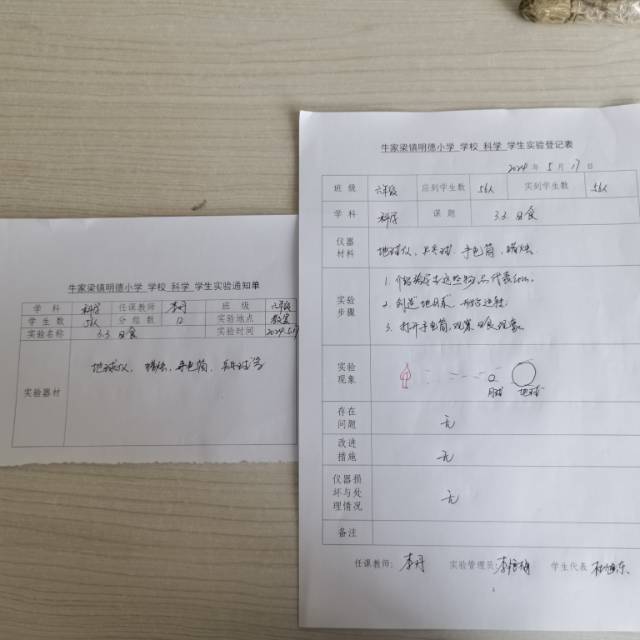 牛家梁镇明德小学_学校_科学_学生实验通知单
学 科 科学 任课教师 李丹 班 级 六年级
学 生 数 56人 分 组 数 12 实验地点 教室
实验名称 3.3 日食 实验时间 2024.5.17
实验器材 地球仪、蜡烛、手电筒、乒乓球等
牛家梁镇明德小学_学校_科学_学生实验登记表
2024 年 5 月 17 日
班 级 六年级 应到学生数 56人 实到学生数 56人
学 科 科学 课 题 3.3 日食
仪器
材料
地球仪、乒乓球、手电筒、蜡烛
实验
步骤
1.
2.
3. 打开手电筒,观察日食现象.
实验
现象
月球 地球
存在
问题
无
改进
措施
无
仪器损
坏与处
理情况
无
备注
任课教师: 李丹 实验管理员: 学生代表